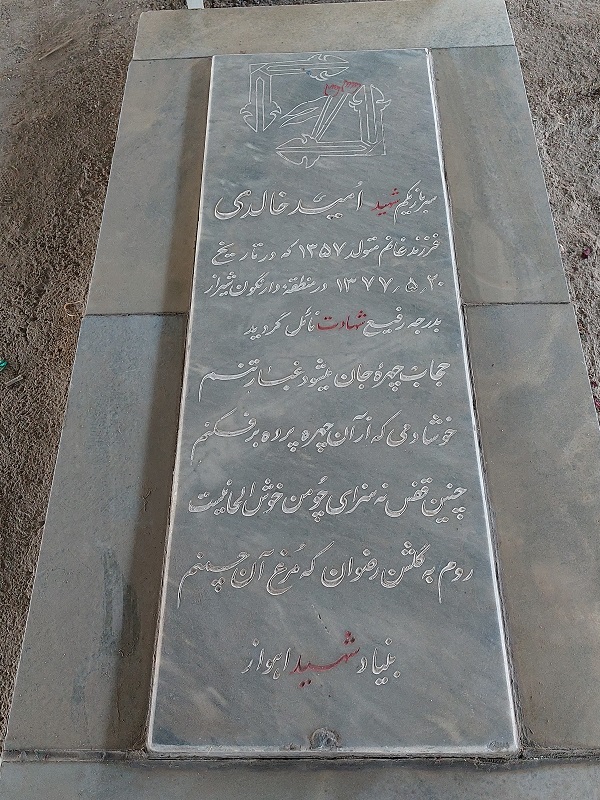 سرباز یکم شهید امید خالدی
فرزند غانم متولد ۱۳۵۷ که در تاریخ
۱۳۷۷٫۵٫۲۰ در منطقه دارنگون شیراز
بدرجه رفیع شهادت نائل گردید
حجاب چهرهٔ جان میشود غبار تنم
خوشا دمی که از آن چهره پرده برفکنم
چنین قفس نه سزای چو من خوش الحانیست
روم به گلشن رضوان که مرغ آن چمنم
بنیاد شهید اهواز